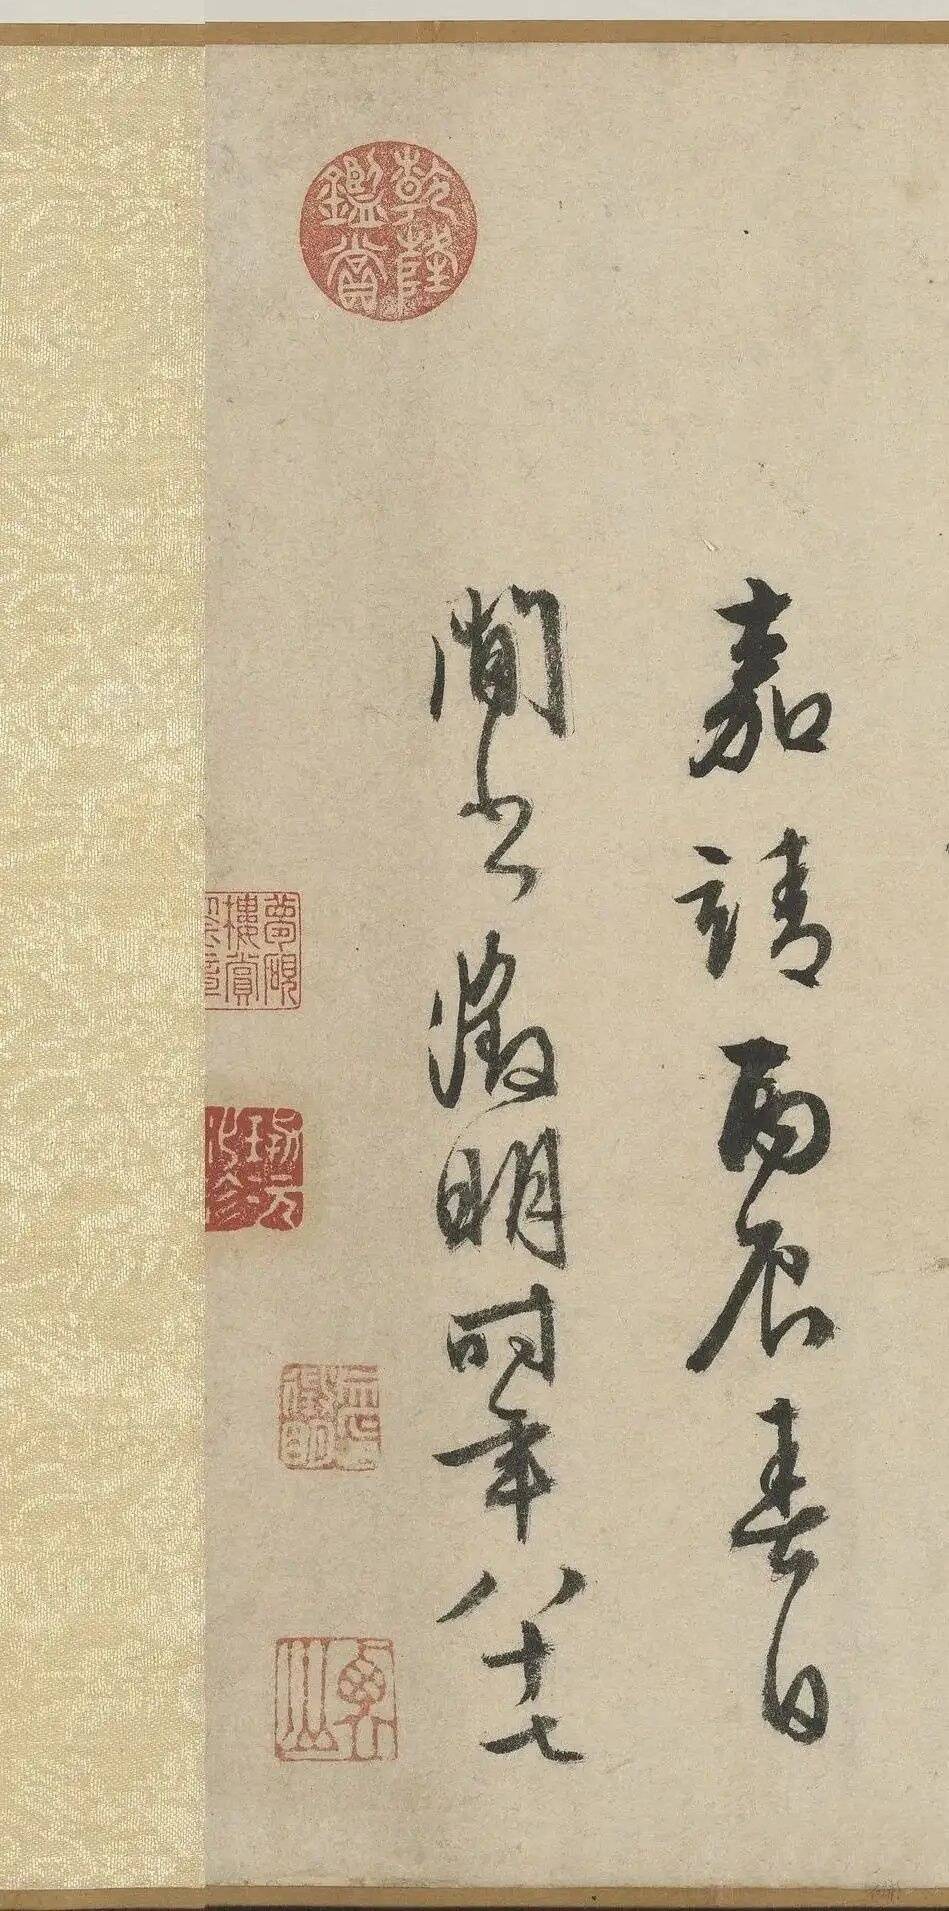 嘉靖丙辰春日
閒書徵明時年八十七
乾隆鑑賞
衡山